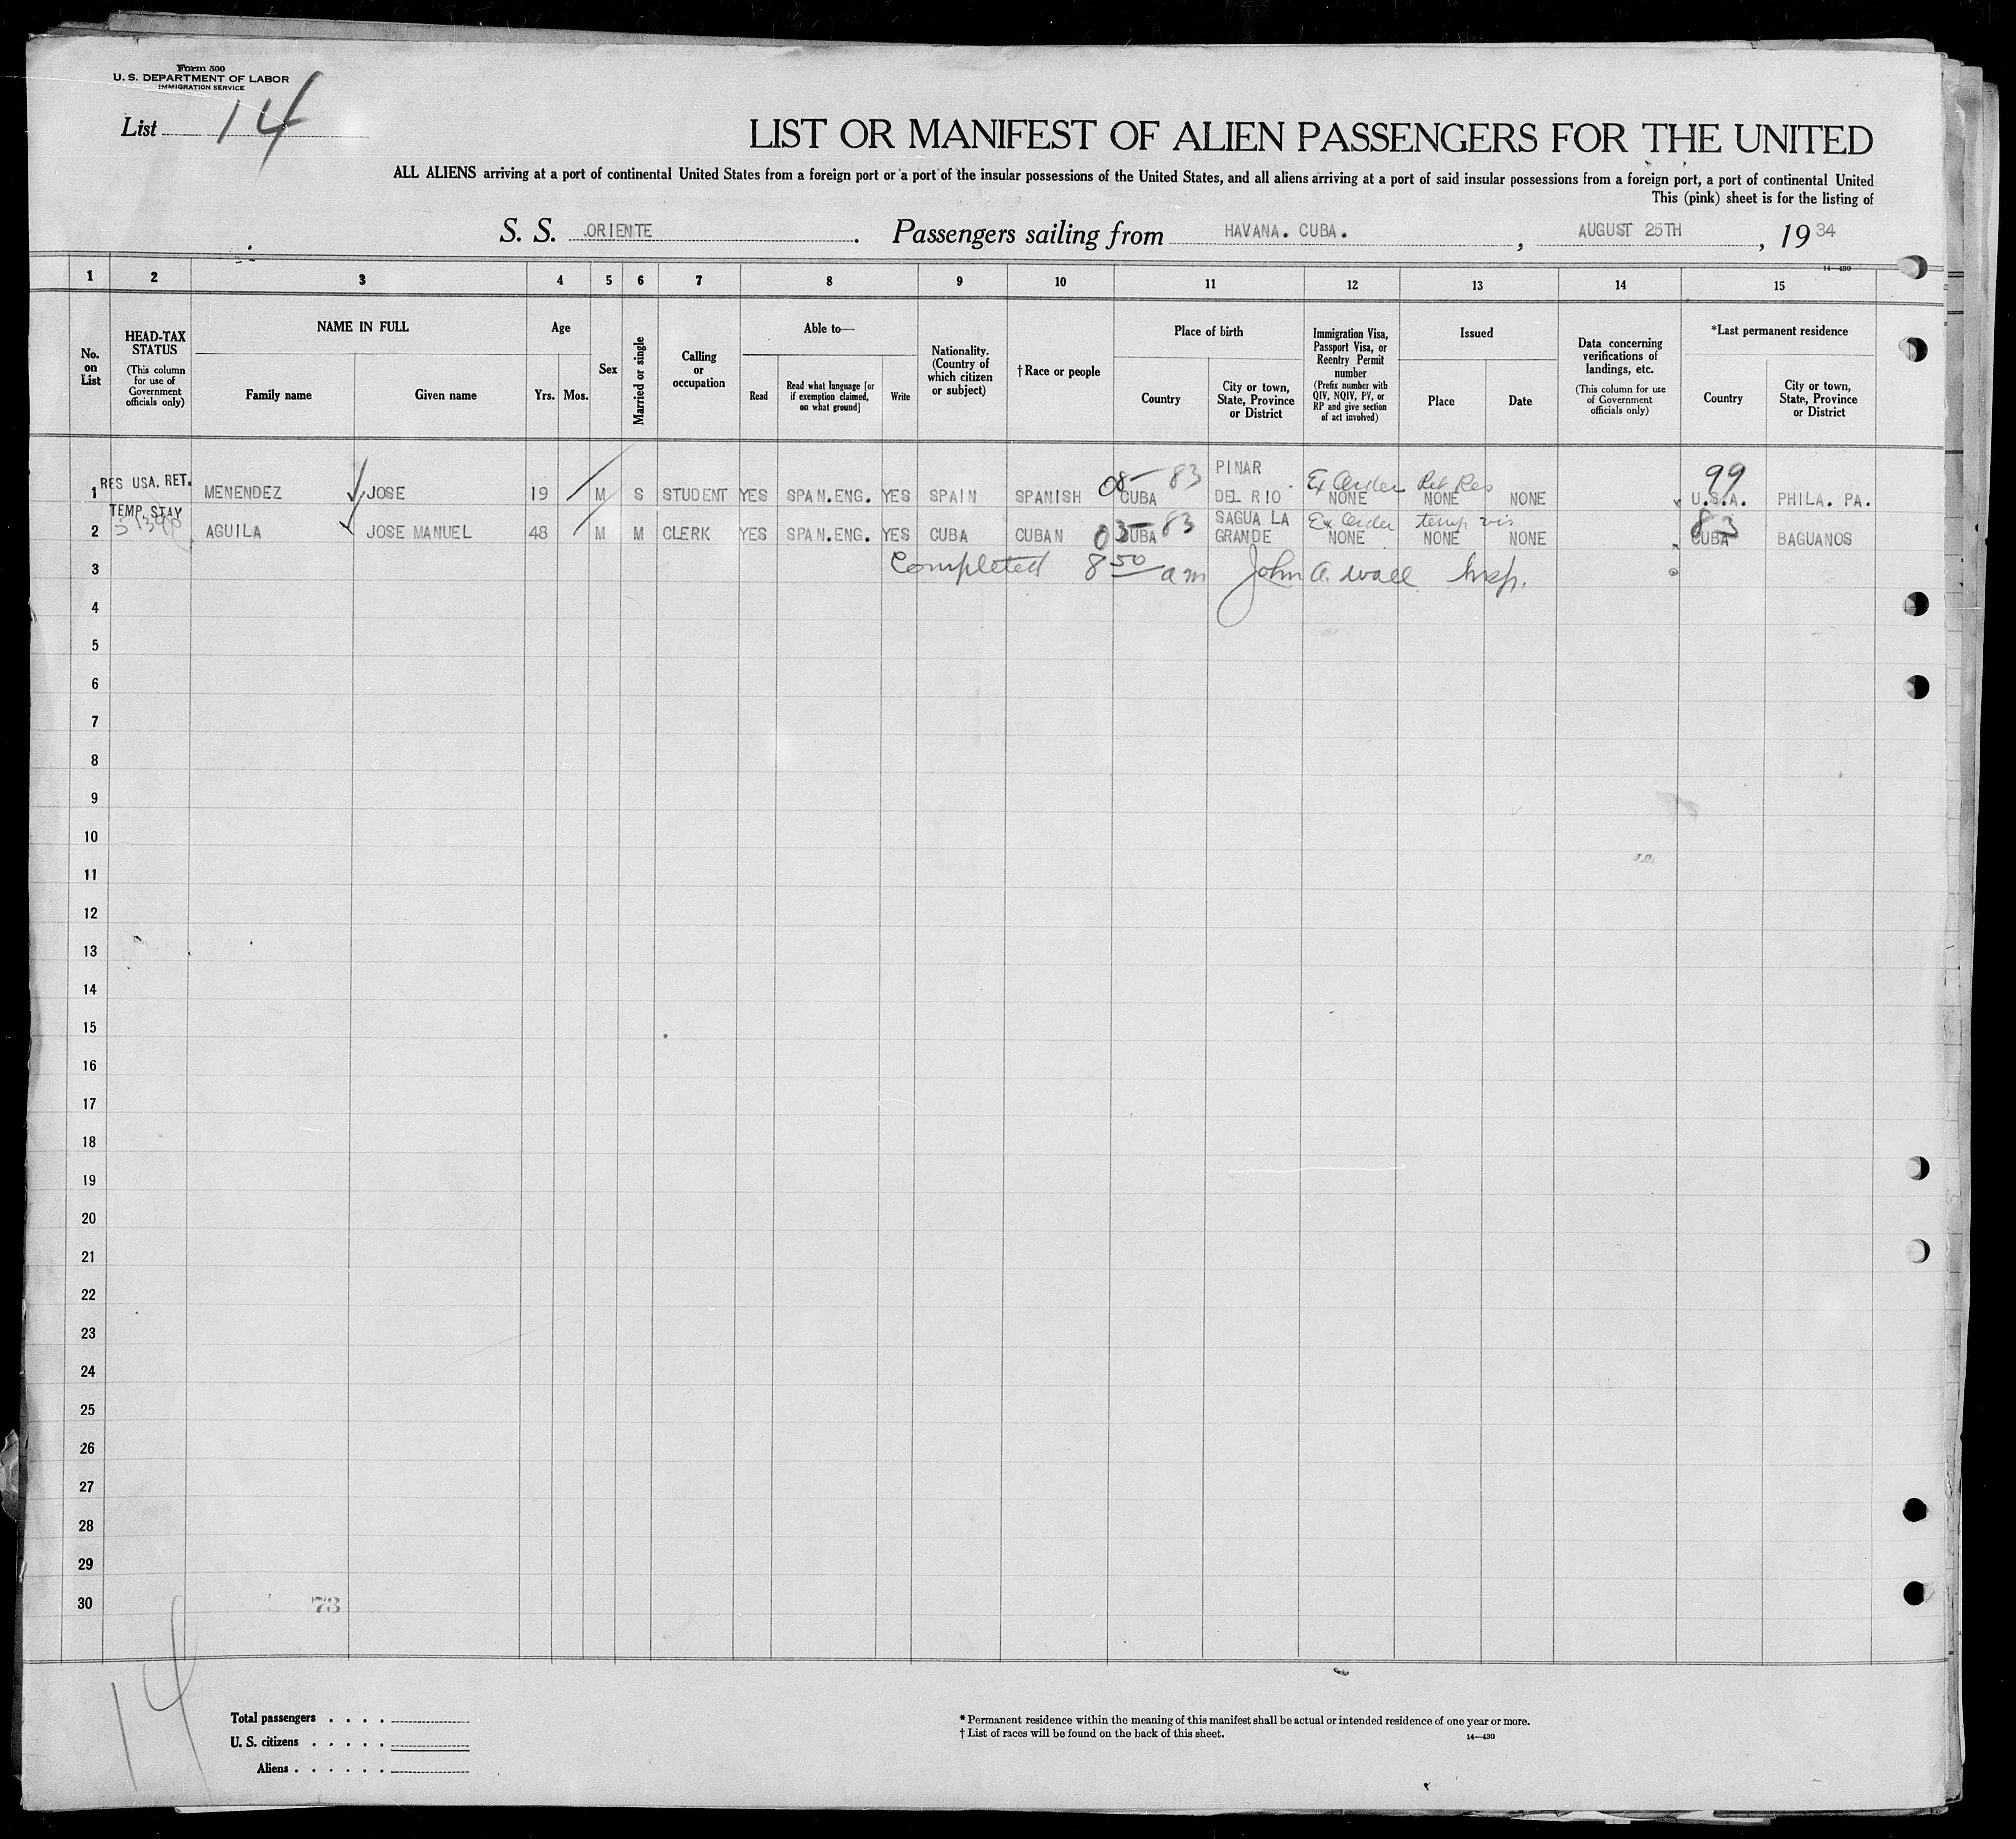 Form 500
U. S. DEPARTMENT OF LABOR
IMMIGRATION SERVICE
List 14
LIST OR MANIFEST OF ALIEN PASSENGERS FOR THE UNITED
ALL ALIENS arriving at a port of continental United States from a foreign port or a port of the insular possessions of the United States, and all aliens arriving at a port of said insular possessions from a foreign port, a port of continental United
This (pink) sheet is for the listing of
S. S. ORIENTE. Passengers sailing from HAVANA. CUBA. , AUGUST 25TH , 19 34
14—430
1 2 3 4 5 6 7 8 9 10 11 12 13 14 15
No. on List
HEAD-TAX STATUS
(This column for use of Government officials only)
NAME IN FULL
Family name
Given name
Age
Yrs. Mos.
Sex
Married or single
Calling or occupation
Able to—
Read
Read what language [or if exemption claimed, on what ground]
Write
Nationality. (Country of which citizen or subject)
†Race or people
Place of birth
Country
City or town, State, Province or District
Immigration Visa, Passport Visa, or Reentry Permit number
(Prefix number with QIV, NQIV, PV, or RP and give section of act involved)
Issued
Place
Date
Data concerning verifications of landings, etc.
(This column for use of Government officials only)
*Last permanent residence
Country
City or town, State, Province or District
08- 83 PINAR Ex Order Ret Res 99
1 RES USA. RET. MENENDEZ JOSE 19 M S STUDENT YES SPAN.ENG. YES SPAIN SPANISH CUBA DEL RIO NONE NONE NONE U.S.A. PHILA. PA.
TEMP. STAY 03- 83 SAGUA LA Ex Order temp vis 83
2 AGUILA JOSE MANUEL 48 M M CLERK YES SPAN.ENG. YES CUBA CUBAN CUBA GRANDE NONE NONE NONE CUBA BAGUANOS
3 Completed 8 50 am John A. Wall Insp.
4
5
6
7
8
9
10
11
12
13
14
15
16
17
18
19
20
21
22
23
24
25
26
27
28
29
30 73
14
Total passengers . . . .
U. S. citizens . . . . .
Aliens . . . . . .
* Permanent residence within the meaning of this manifest shall be actual or intended residence of one year or more.
† List of races will be found on the back of this sheet.
14—430